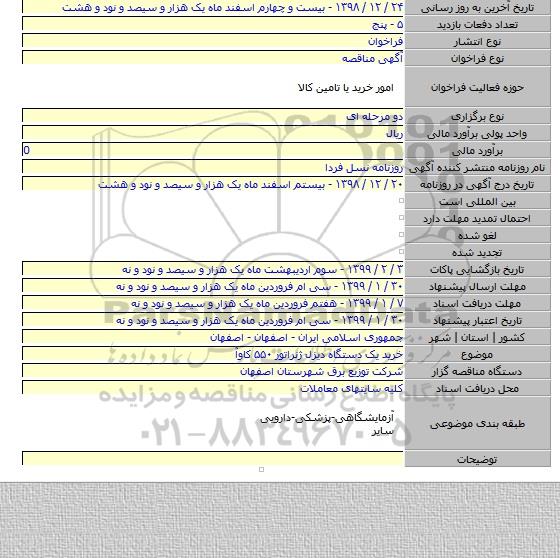 تاریخ آخرین به روز رسانی ۲۴ / ۱۲ / ۱۳۹۸ - بیست و چهارم اسفند ماه یک هزار و سیصد و نود و هشت
تعداد دفعات بازدید ۵ - پنج
نوع انتشار فراخوان
نوع فراخوان آگهی مناقصه
حوزه فعالیت فراخوان امور خرید با تامین کالا
نوع برگزاری دو مرحله ای
واحد پولی برآورد مالی ریال
برآورد مالی 0
نام روزنامه منتشر کننده آگهی روزنامه نسل فردا
تاریخ درج آگهی در روزنامه ۲۰ / ۱۲ / ۱۳۹۸ - بیستم اسفند ماه یک هزار و سیصد و نود و هشت
بین المللی است
احتمال تمدید مهلت دارد
لغو شده
تجدید شده
تاریخ بازگشایی پاکات ۳ / ۲ / ۱۳۹۹ - سوم اردیبهشت ماه یک هزار و سیصد و نود و نه
مهلت ارسال پیشنهاد ۳۰ / ۱ / ۱۳۹۹ - سی ام فروردین ماه یک هزار و سیصد و نود و نه
مهلت دریافت اسناد ۷ / ۱ / ۱۳۹۹ - هفتم فروردین ماه یک هزار و سیصد و نود و نه
تاریخ اعتبار پیشنهاد ۳۰ / ۱ / ۱۳۹۹ - سی ام فروردین ماه یک هزار و سیصد و نود و نه
کشور | استان | شهر جمهوری اسلامی ایران - اصفهان - اصفهان
موضوع خرید یک دستگاه دیزل ژنراتور ۵۵۰ کاوآ
دستگاه مناقصه گزار شرکت توزیع برق شهرستان اصفهان
محل دریافت اسناد کلیه سایتهای معاملات
پایگاه اطلاع رسانی مناقصه و مزایده
طبقه بندی موضوعی آزمایشگاهی-پزشکی-دارویی
سایر
۰۲۱-۸۸۳۴۹۶۷۰-۵
توضیحات